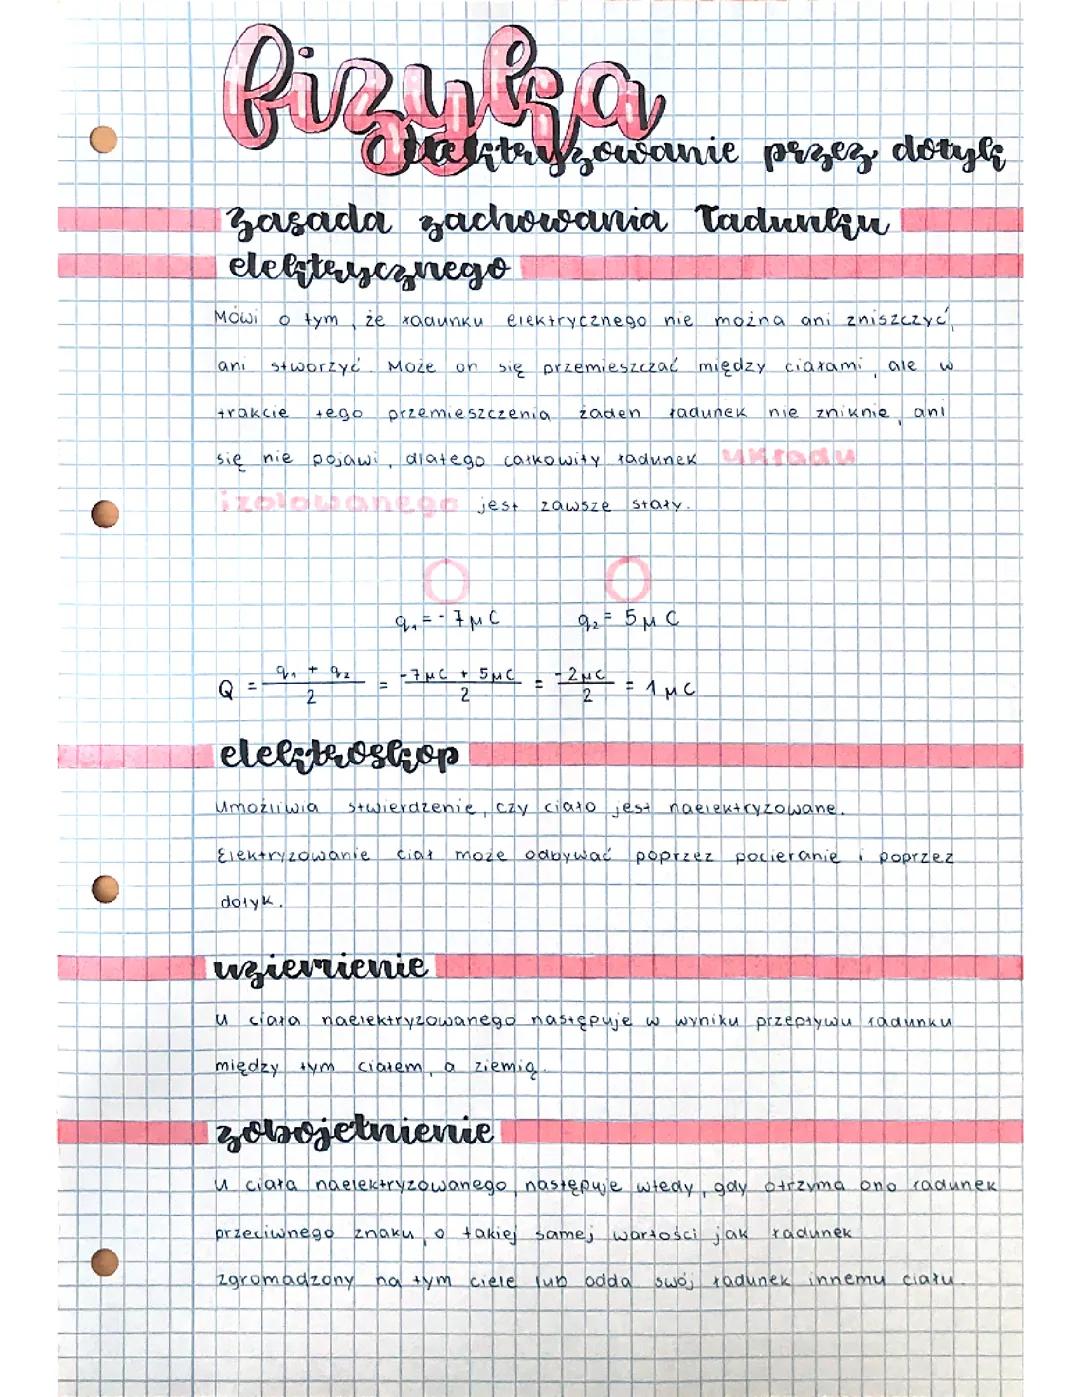 fizyka
Elektryzowanie przez dotyk
zasada zachowania ładunku
elektrycznego
Mówi o tym, że ładunku elektrycznego nie można ani zniszczyć,
ani stworzyć. Może on się przemieszczać między ciałami, ale w
trakcie tego przemieszczenia żaden ładunek nie zniknie, ani
się nie pojawi, dlatego całkowity ładunek układu
izolowanego jest zawsze stały.
q₁ = -7 μC q₂ = 5 μC
Q = (q₁ + q₂)/2 = (-7μC + 5μC)/2 = (-2μC)/2 = 1 μC
elektroskop
Umożliwia stwierdzenie, czy ciało jest naelektryzowane.
Elektryzowanie ciał może odbywać poprzez pocieranie i poprzez
dotyk.
uziemienie
U ciała naelektryzowanego następuje w wyniku przepływu ładunku
między tym ciałem, a ziemią.
zobojętnienie
U ciała naelektryzowanego, następuje wtedy, gdy otrzyma ono ładunek
przeciwnego znaku, o takiej samej wartości jak ładunek
zgromadzony na tym ciele lub odda swój ładunek innemu ciału.